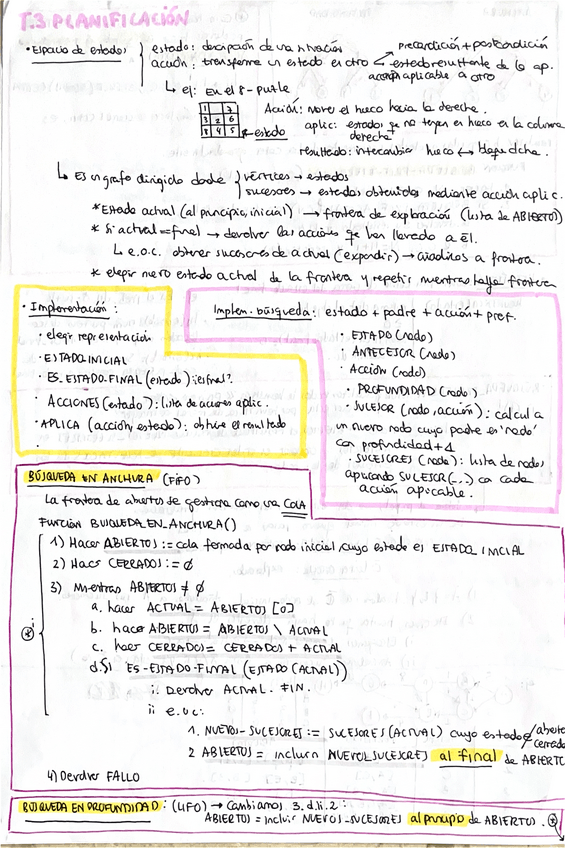 T.3 PLANIFICACIÓN
· Espacio de estados
estado: descripción de una situación
precondición + postcondición
acción: transforma un estado en otro
estado resultante de la ap.
acción aplicable a otro
↳ ej: En el 8-puzle
1 7
3 2 6
8 4 5
← estado
Acción: Mover el hueco hacia la derecha.
aplic: estados que no tengan en hueco en la columna
derecha
resultado: intercambia hueco ↔ bloque dcha.
↳ Es un grafo dirigido donde
vértices → estados
sucesores → estados obtenidos mediante acción aplic.
* Estado actual (al principio, inicial) → frontera de exploración (lista de ABIERTOS)
* Si actual = final → devolver las acciones que han llevado a él.
↳ e.o.c. obtener sucesores de actual (expandir) → añadirlos a frontera.
* elegir nuevo estado actual de la frontera y repetir mientras haya frontera
· Implementación:
· elegir representación
· ESTADO.INICIAL
· ES.ESTADO.FINAL (estado): ¿es final?
· ACCIONES (estado): lista de acciones aplic.
· APLICA (acción, estado): obtiene el resultado
Implem. búsqueda: estado + padre + acción + prof.
· ESTADO (nodo)
· ANTECESOR (nodo)
· ACCIÓN (nodo)
· PROFUNDIDAD (nodo)
· SUCESOR (nodo, acción): calcula
un nuevo nodo cuyo padre es 'nodo'
con profundidad + 1
· SUCESORES (nodo): lista de nodos
aplicando SUCESOR (_,_) con cada
acción aplicable.
BÚSQUEDA EN ANCHURA (FIFO)
La frontera de abiertos se gestiona como una COLA
Función BUSQUEDA_EN_ANCHURA()
1) Hacer ABIERTOS := cola formada por nodo inicial, cuyo estado es ESTADO_INICIAL
2) Hacer CERRADOS := ∅
3) Mientras ABIERTOS ≠ ∅
a. hacer ACTUAL = ABIERTOS [0]
b. hacer ABIERTOS = ABIERTOS \ ACTUAL
c. hacer CERRADOS = CERRADOS + ACTUAL
d. Si ES-ESTADO-FINAL (ESTADO (ACTUAL))
i. Devolver ACTUAL. FIN.
ii e.o.c:
1. NUEVOS-SUCESORES := SUCESORES (ACTUAL) cuyo estado ∉ abiertos
cerrados
2 ABIERTOS = incluir NUEVOS_SUCESORES al final de ABIERTO
4) Devolver FALLO
BÚSQUEDA EN PROFUNDIDAD: (LIFO) → Cambiamos 3.d.ii.2:
ABIERTOS = incluir NUEVOS-SUCESORES al principio de ABIERTOS.